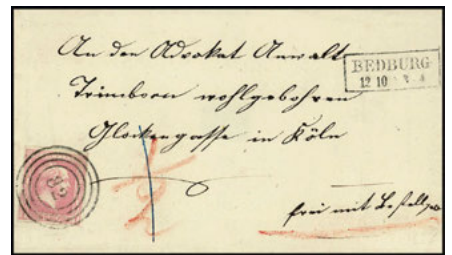 An den Advokat Anwalt
Trimborn wohlgebohren
Glockengasse in Köln
BEDBURG
12 10
82
frei mit